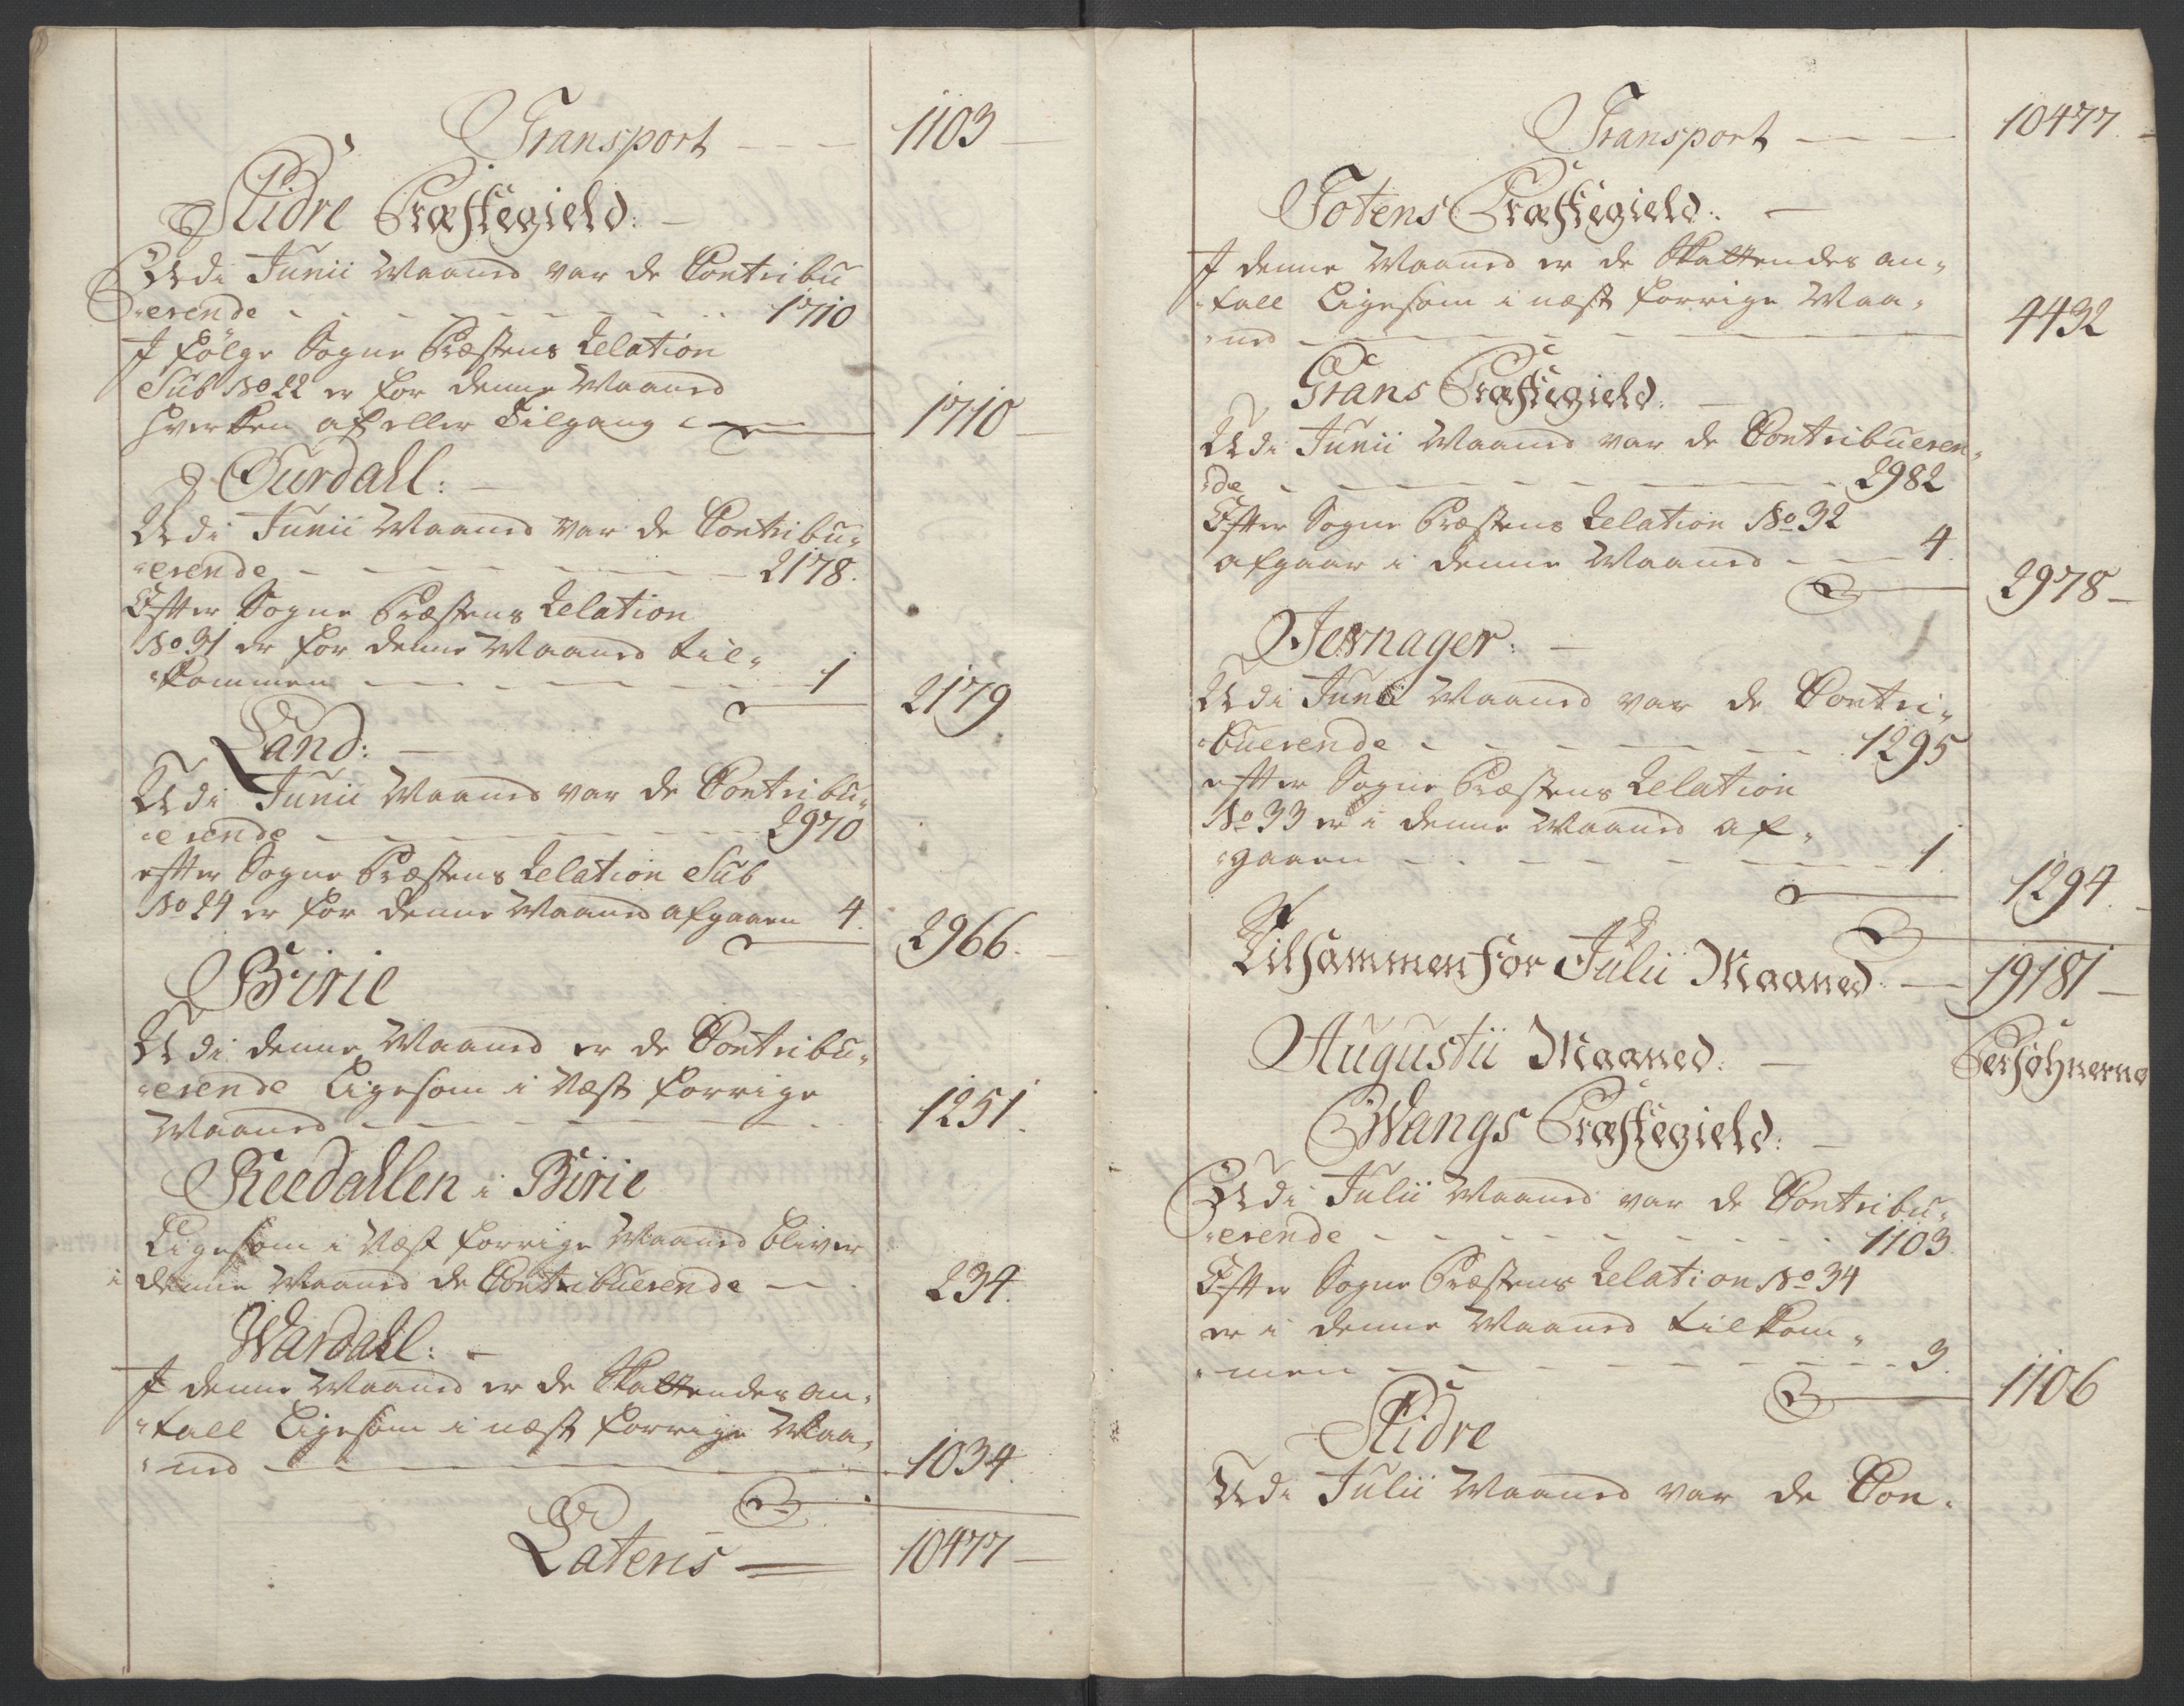 Transport - - - 1103 -
Slidre Præstegield: -
Udi Junii Maaned var de Contribu
erende - - - - - - - 1710
I følge Sogne Præstens Relation
Sub No 22 er for denne Maaned
hverken af eller Tilgang - 1710 -
Ourdall: -
Udi Junii Maaned var de Contribu„
„erende - - - - - - 2178.
Efter Sogne Præstens Relation
No 31 er for denne Maaned til„
„kommen - - - - - - 1
2179
Land: -
Udi Junii Maaned var de Contribu„
„erende - - - - - - 2970
efter Sogne Præstens Relation Sub
No 24 er for denne Maaned afgaaen 4.
2966. -
Birie
Udi denne Maaned er de Contribu„
„erende Ligesom i Næst forrige
Maaned - - - - - - 1251.
Reedallen i Birie
Ligesom i Næst forrige Maaned bliver
i denne Maaned de Contribuerende - 234.
Wardall: -
I denne Maaned er de Skattendes an„
„tall Ligesom i næst forrige Maa„
„ned - - - - - - 1034.
Lateris - 10477 -
Transport - - - 10477. -
Totens Præstegield: -
I denne Maaned er de Skattendes an„
„tall Ligesom i næst forrige Maa„
„ned - - - - - - 4432
Grans Præstegield: -
Udi Junii Maaned var de Contribueren„
„de - - - - - - 2982
Efter Sogne Præstens Relation No 32
afgaar i denne Maaned - - - 4.
2978 -
Jevnager: -
Udi Junii Maaned var de Contri„
„buerende - - - - - - 1295
efter Sogne Præstens Relation
No 33 er i denne Maaned af„
„gaaen - - - - - - 1.
1294. -
Tilsammen for Julii Maaned - 19181 -
Augustii Maaned: - Persohnerne
Wangs Præstegield: -
Udi Julii Maaned var de Contribu„
„erende - - - - - - 1103.
Efter Sogne Præstens Relation No 34
er i denne Maaned tilkom„
„men - - - - - - 3.
1106
Slidre
Udi Julii Maaned var de Con„